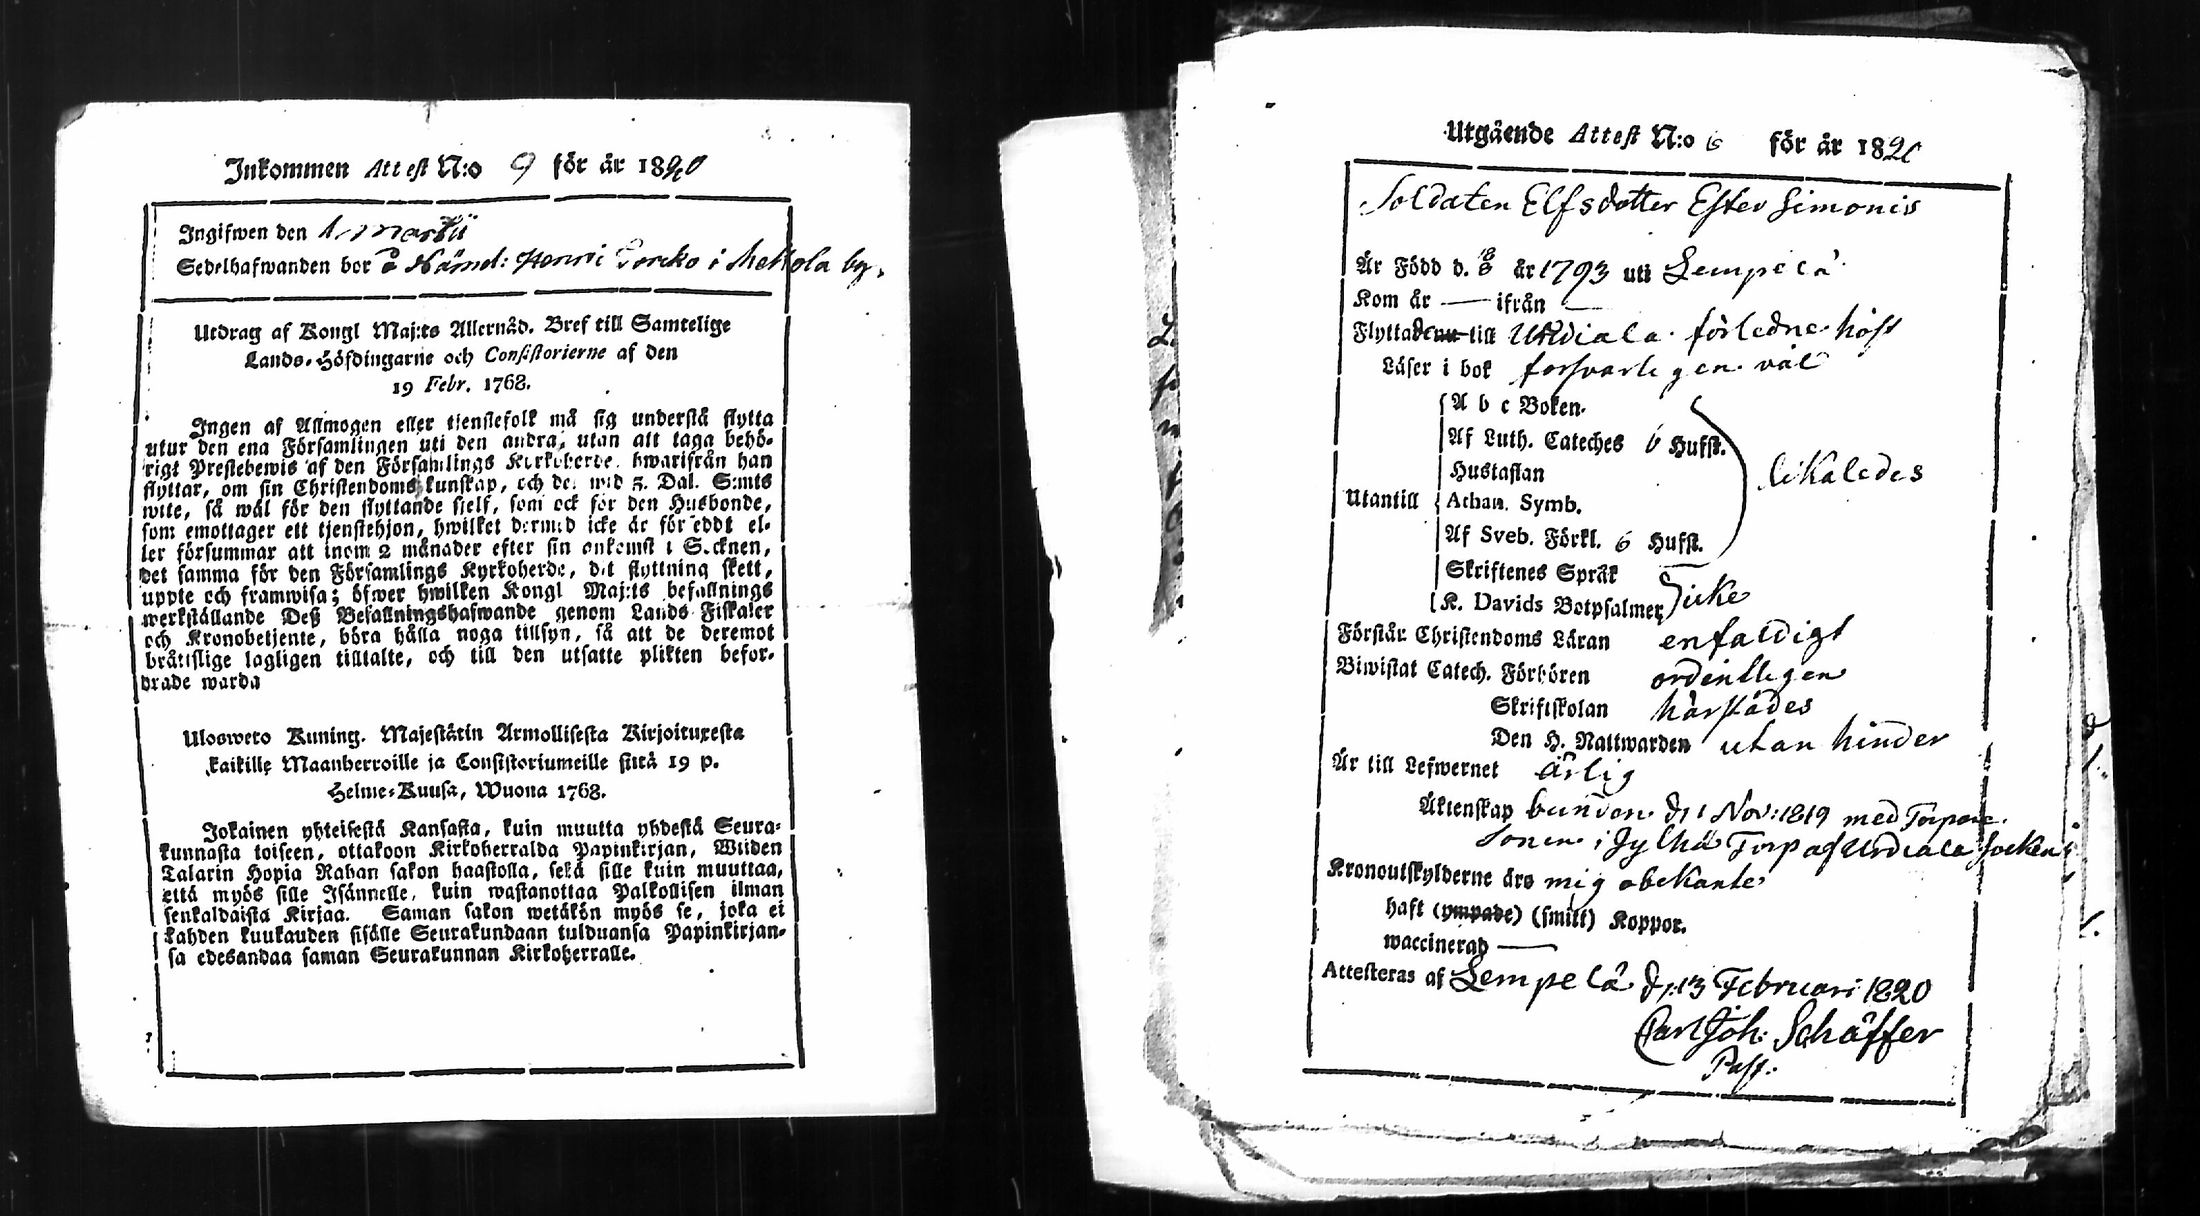 Inkommen Attest N:o 9 för år 1820
Ingifwen den 1. Martii
Sedelhafwanden bor å Nämd: Henri i Mellola by.
Utdrag af Kongl Maj:ts Allernåd. Bref till Samtelige
Lands-Höfdingarne och Consistorierne af den
19 Febr. 1768.
Ingen af Allmogen eller tjenstefolk må sig understå flytta
utur den ena Församlingen uti den andra, utan att taga behö-
rigt Prestebewis af den Församlings Kyrkoherde, hwarifrån han
flyttar, om sin Christendoms kunskap, och det wid 5. Dal. S:mts
wite, så wäl för den flyttande sjelf, som ock för den Husbonde,
som emottager ett tjenstehjon, hwilket dermed icke är försedt el-
ler försummar att inom 2 månader efter sin ankomst i Socknen,
det samma för den Församlings Kyrkoherde, dit flyttning skett,
uppte och framwisa; öfwer hwilken Kongl Maj:ts befallnings
werkställande Deß Befallningshafwande genom Lands Fiskaler
och Kronobetjente, böra hålla noga tillsyn, så att de deremot
bråttslige lagligen tilltalte, och till den utsatte plikten befor-
drade warda
Ulosweto Kuning. Majestätin Armollisesta Kirjoituxesta
kaikille Maanherroille ja Consistoriumeille siitä 19 p.
Helme-Kuusa, Wuona 1768.
Jokainen yhteisestä Kansasta, kuin muutta yhdestä Seura-
kunnasta toiseen, ottakoon Kirkoherralda Papinkirjan, Wiiden
Talarin Hopia Rahan sakon haastolla, sekä sille kuin muuttaa,
että myös sille Isännelle, kuin wastanottaa Palkollisen ilman
senkaldaista Kirjaa. Saman sakon wetäkön myös se, joka ei
kahden kuukauden sisälle Seurakundaan tulduansa Papinkirjan-
sa edesandaa saman Seurakunnan Kirkoherralle.
Utgående Attest N:o 6 för år 1820
Soldaten Elfs dotter Ester Simonis
Är Född d. 8/8 år 1793 uti Lempelä
Kom år — ifrån —
Flyttade nu till Urdiala förledne höst
Läser i bok forsvarligen väl
Utantill
A b c Boken.
Af Luth. Cateches 6 Hufst.
Hustaflan
Athan. Symb.
Af Sveb. Förkl. 6 Hufst.
likaledes
Skriftenes Språk
K. Davids Botpsalmer
icke
Förstår Christendoms Läran enfaldigt
Biwistat Catech. Förhören ordentligen
Skriftskolan härstädes
Den H. Nattwarden utan hinder
Är till Lefwernet ärlig
Äktenskap bunden d. 1 Nov: 1819 med Torpare
Sonen i Jylhä Torp af Urdiala Socken
Kronoutskylderne äro mig obekante
haft (ympade) (smitt) Koppor.
waccinerad —
Attesteras af Lempelä d. 13 Februari 1820
Carl Joh: Schäffer
Past.